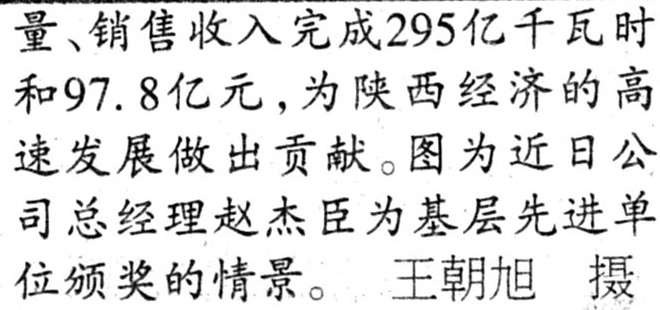 量、销售收入完成295亿千瓦时
和97.8亿元,为陕西经济的高
速发展做出贡献。图为近日公
司总经理赵杰臣为基层先进单
位颁奖的情景。 王朝旭 摄